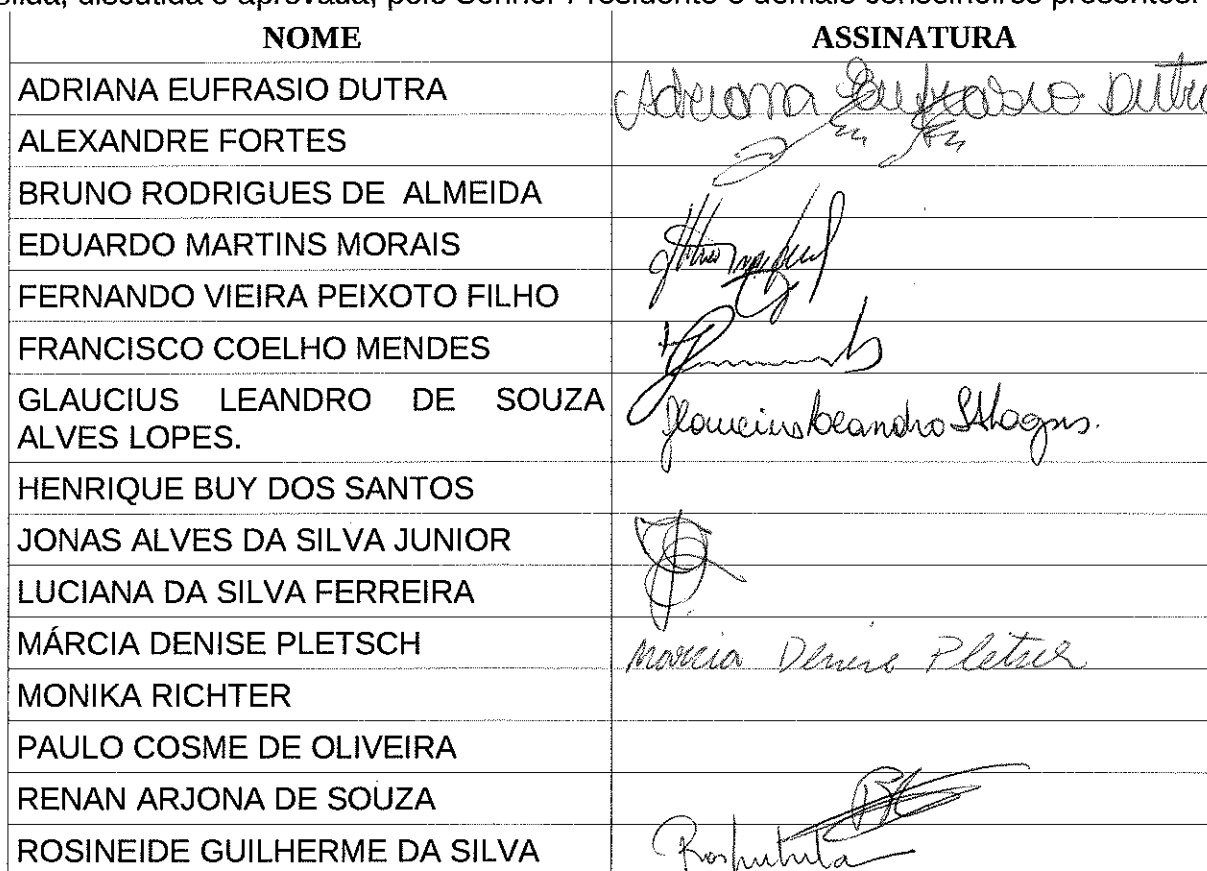 lida, discutida e aprovada, pelo Senhor Presidente e demais conselheiros presentes.
NOME ASSINATURA
ADRIANA EUFRASIO DUTRA Adriana Eufrasio Dutra
ALEXANDRE FORTES
BRUNO RODRIGUES DE ALMEIDA
EDUARDO MARTINS MORAIS
FERNANDO VIEIRA PEIXOTO FILHO
FRANCISCO COELHO MENDES
GLAUCIUS LEANDRO DE SOUZA
ALVES LOPES. Glaucius Leandro
HENRIQUE BUY DOS SANTOS
JONAS ALVES DA SILVA JUNIOR
LUCIANA DA SILVA FERREIRA
MÁRCIA DENISE PLETSCH Marcia Denise Pletsch
MONIKA RICHTER
PAULO COSME DE OLIVEIRA
RENAN ARJONA DE SOUZA
ROSINEIDE GUILHERME DA SILVA